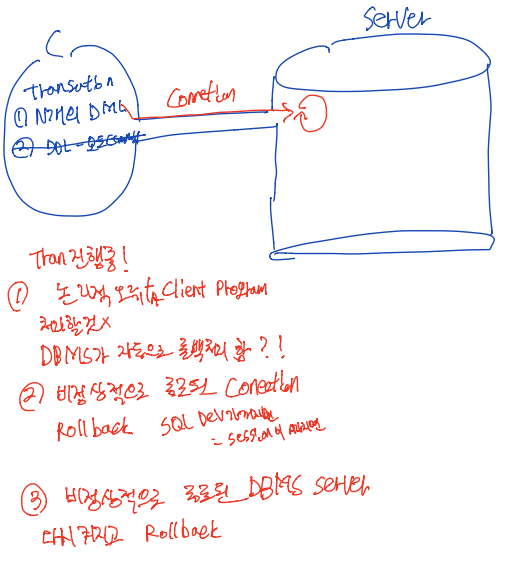 Server
C
Transation
① N개의 DML
② DDL - 오토
Conettion
Tran 진행중!
① 논리적 오류 Client Program
처리할것 X
DBMS가 자동으로 롤백처리 함?!
② 비정상적으로 종료된 Conection
Rollback SQL Dev가
= session이
③ 비정상적으로 종료된 DBMS server
다시 켜지고 Rollback